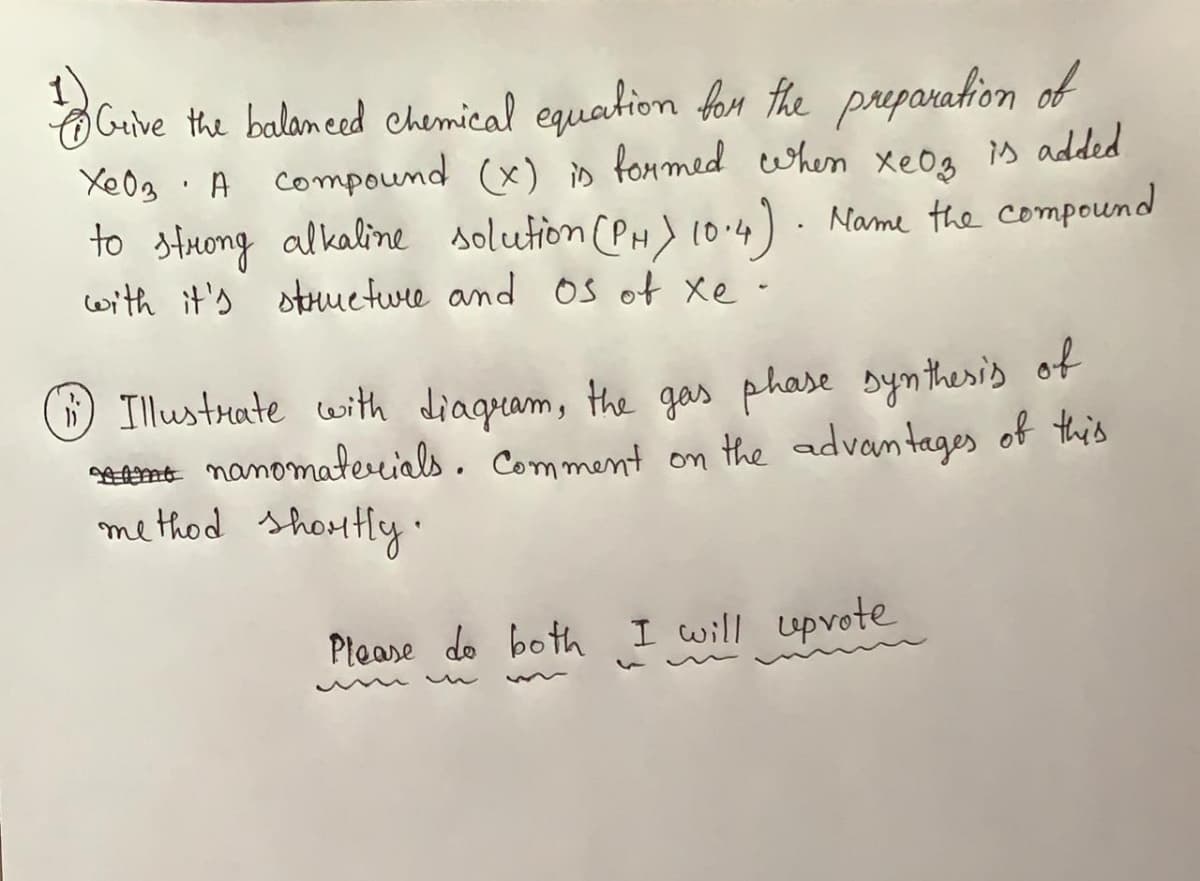 1)
(i) Give the balanced chemical equation for the preparation of
XeO3 . A compound (x) is formed when XeO3 is added
to strong alkaline solution (PH > 10.4) . Name the compound
with it's structure and OS of Xe .
(ii) Illustrate with diagram, the gas phase synthesis of
nanomaterials . Comment on the advantages of this
method shortly .
Please do both I will upvote